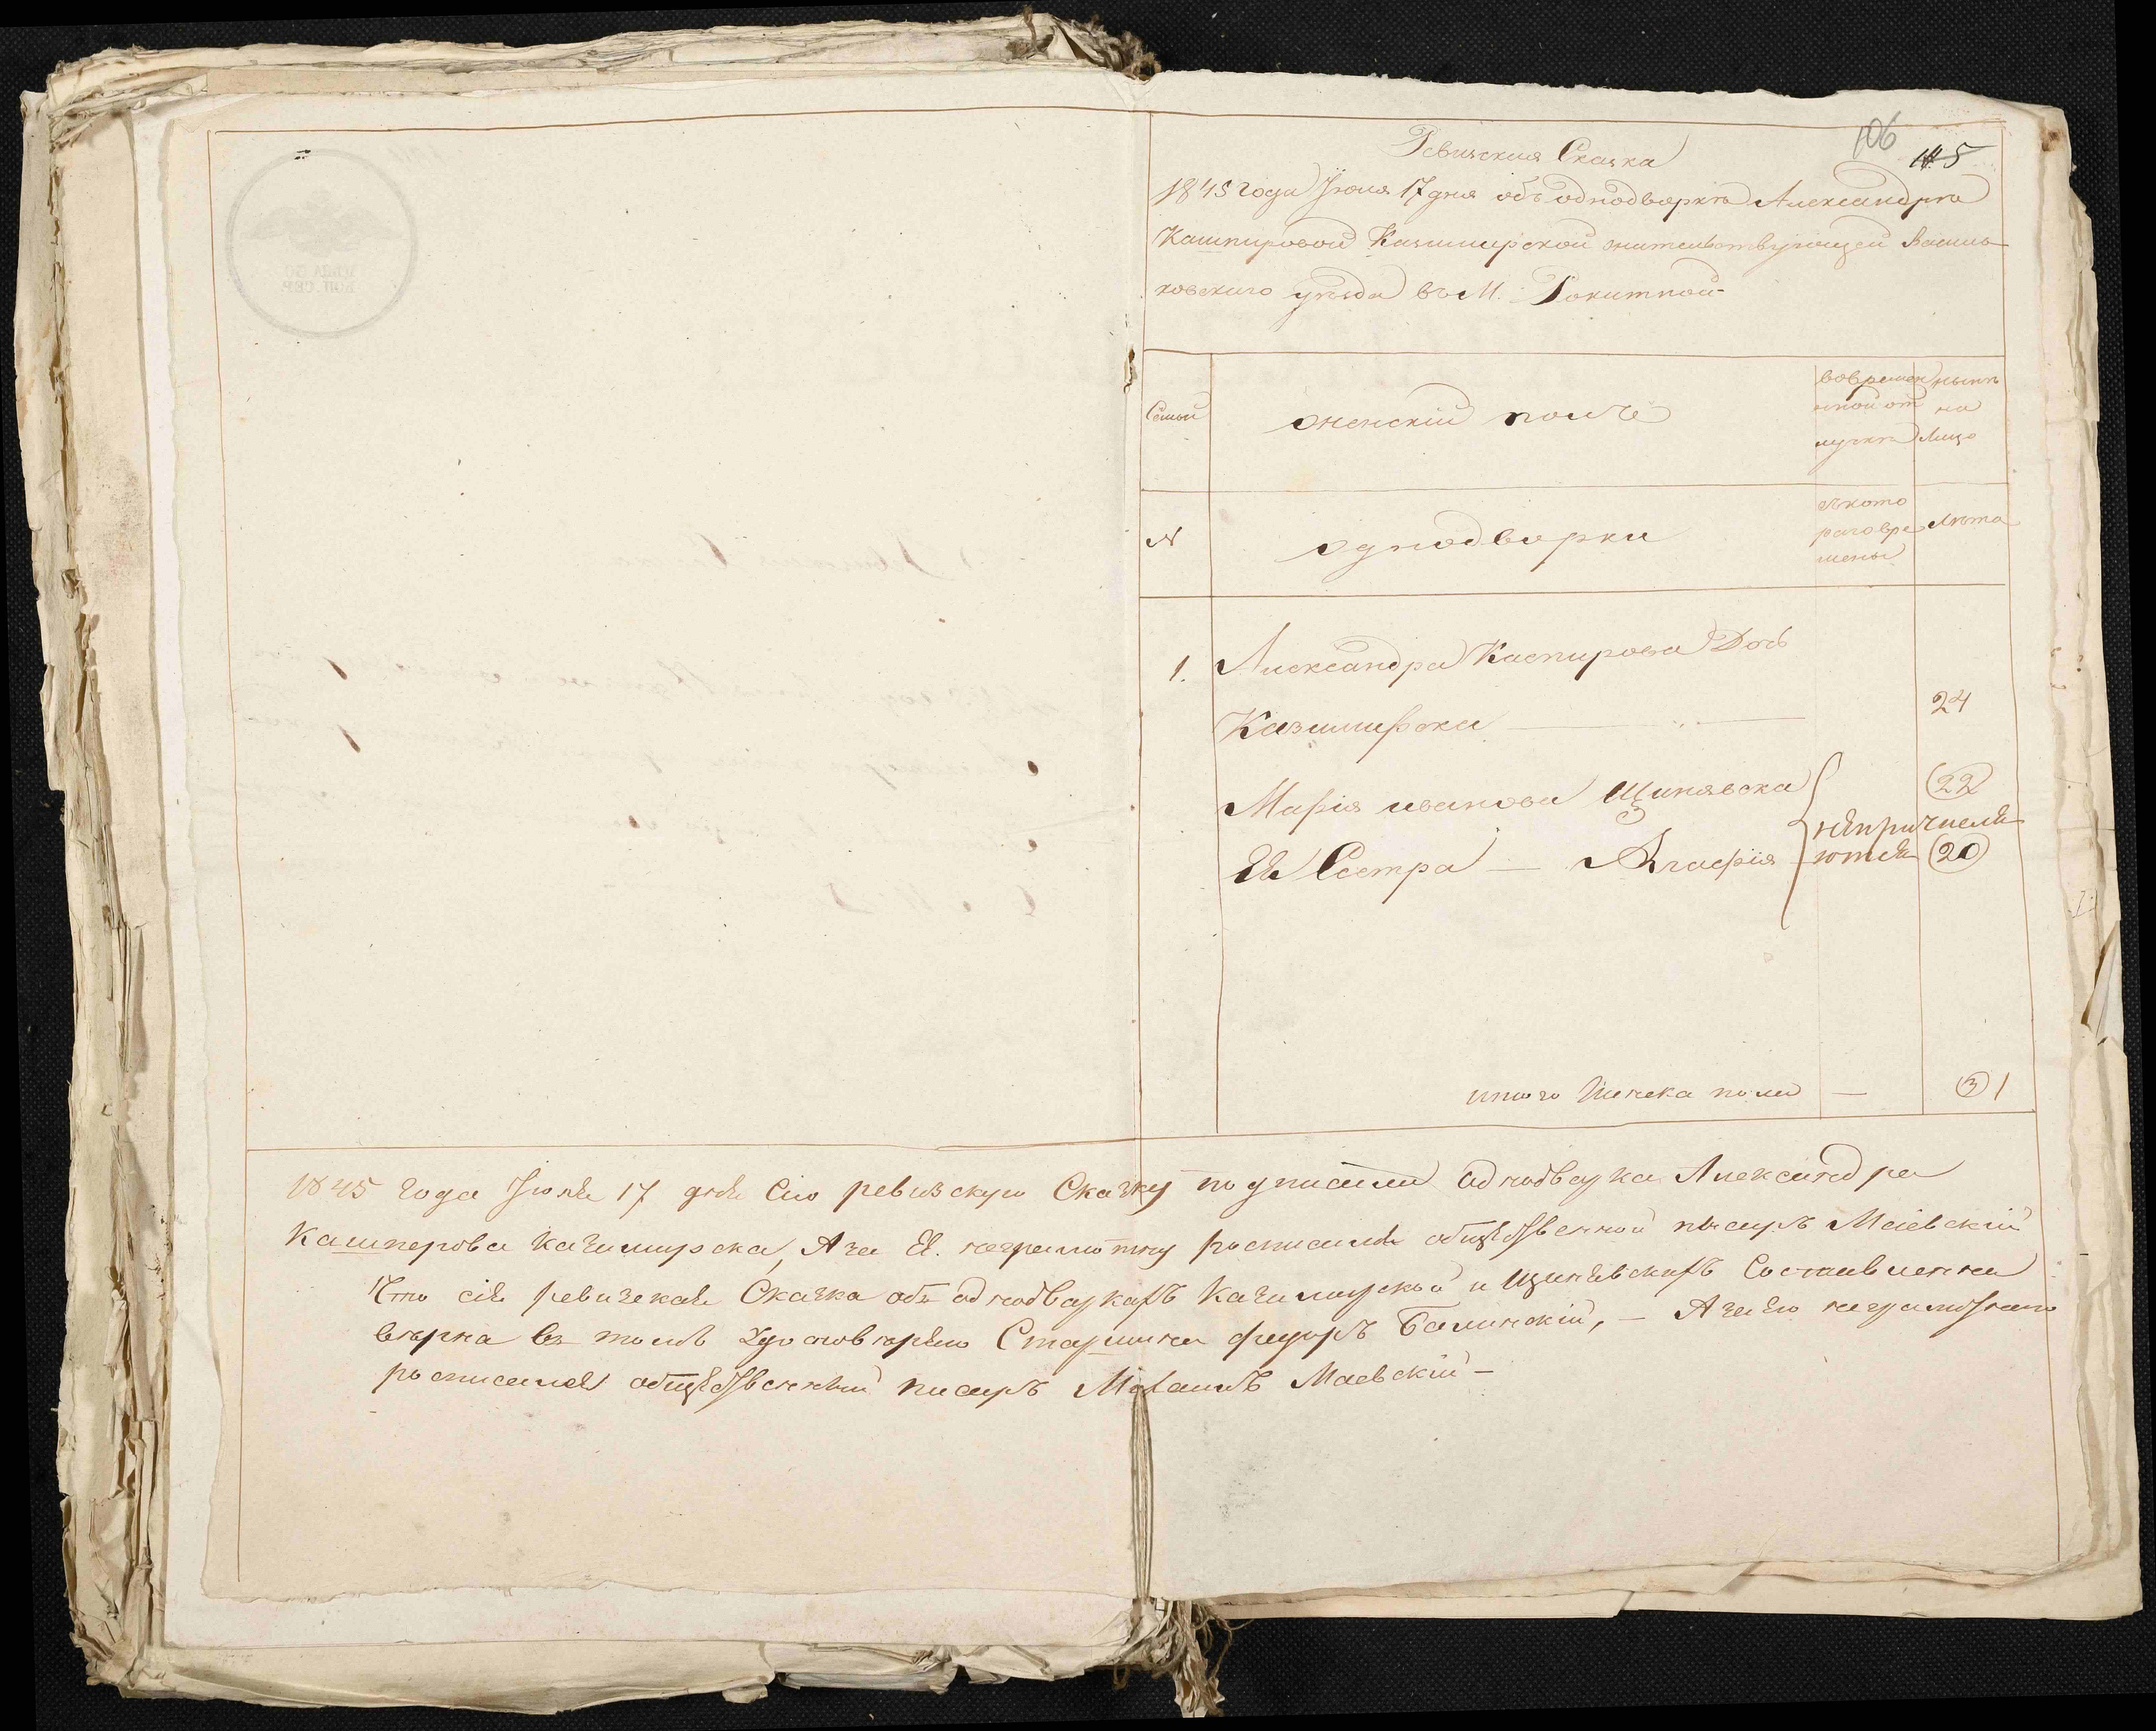 106 115
Ревизская Сказка
1845 года Іюля 17 дня объ однодворкѣ Александрѣ
Кашпировой Казимирской жительствующей Василь-
ковскаго уѣзда въ М. Рокитной
Семьи
женскій полъ
вовремен
ной от
лучкѣ
нынѣ
на
Лицо
№
однодворки
съ кото
раго вре
мены
Лѣта
1. Александра Каспирова Дочь
Казимирска 24
Марія иванова Щинявска 22
Ея Сестра — Агафія 20
непричисля
ются
итого Женска пола — 3 1
1845 года Іюля 17 дня Сію ревизскую Сказку подписали однодворка Александра
Кашперова Казимирска, А за Ея неграмотну росписался общественной писарь Маіевскій
Что сія ревизская Сказка объ однодворкахъ Казимирской и Щинявскихъ Составленна
вѣрна въ томъ Удостовѣряю Старшина федоръ Балинскій, — А за его неграмотнаго
росписался общественный писарь Михаилъ Маевскій —